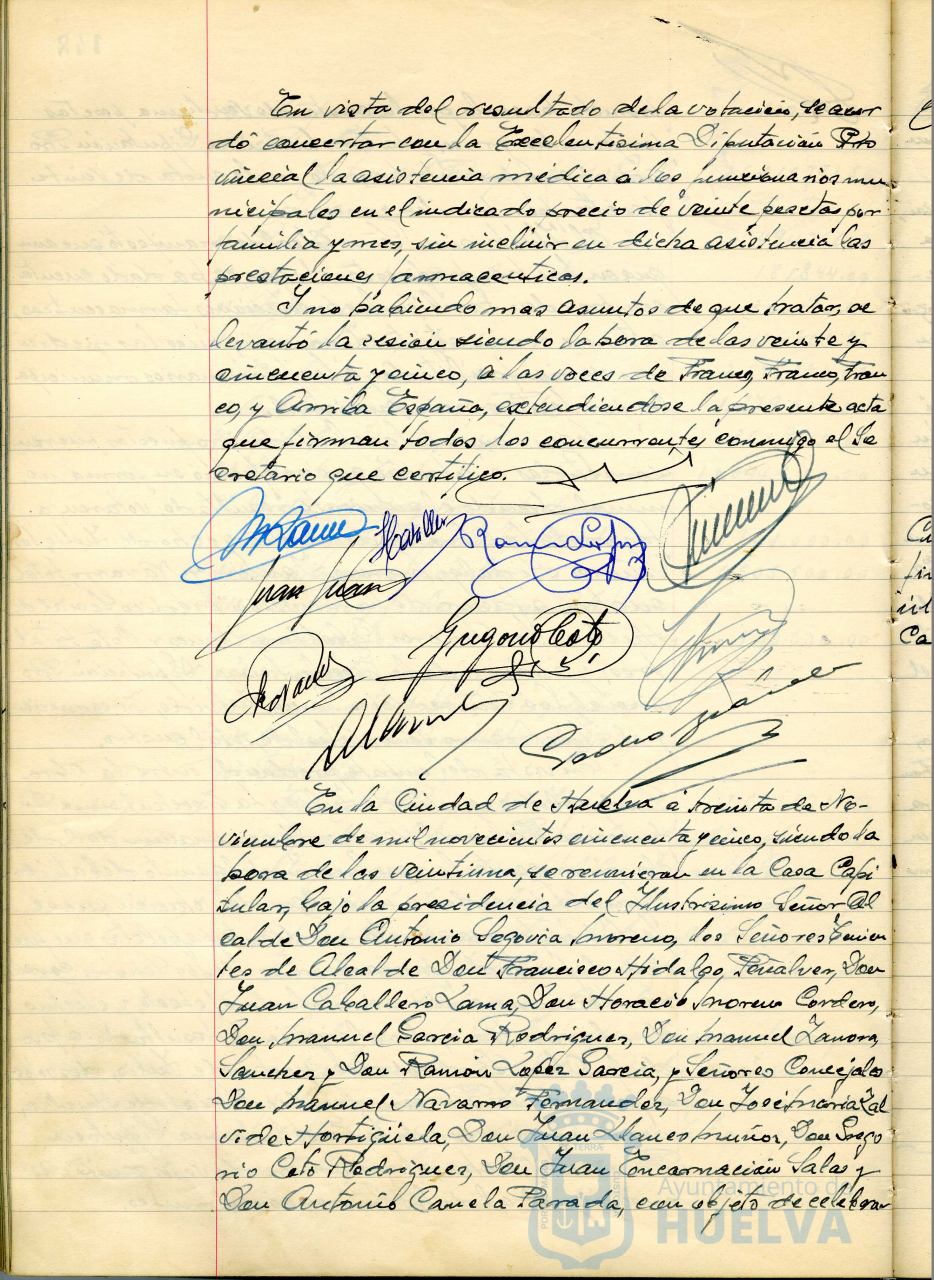 En vista del resultado de la votacion, se acor
dó concertar con la Excelentisima Diputación Pro
vincial la asistencia médica á los funcionarios mu
nicipales en el indicado precio de veinte pesetas por
familia y mes, sin incluir en dicha asistencia las
prestaciones farmaceuticas.
Y no habiendo mas asuntos de que tratar, se
levantó la sesion siendo la hora de las veinte y
cincuenta y cinco, á las voces de Franco, Franco, Fran
co, y Arriba España, extendiendose la presente acta
que firman todos los concurrentes conmigo el Se
cretario que certifico.
Ramon Lopez
Gregorio Coto
En la Ciudad de Huelva á treinta de No-
viembre de mil novecientos cincuenta y cinco, siendo la
hora de las veintiuna, se reunieron en la Casa Capi
tular, bajo la presidencia del Ilustrisimo Señor Al
calde Don Antonio Segovia Moreno, los Señores Tenien
tes de Alcalde Don Francisco Hidalgo Peñalver, Don
Juan Caballero Lama, Don Horacio Moreno Cordero,
Don Manuel Garcia Rodriguez, Don Manuel Zamora
Sanchez y Don Ramón López Garcia, y Señores Concejales
Don Manuel Navarro Fernandez, Don José Maria Zal
vide Hortigüela, Don Juan Llanes Muñoz, Don Grego
rio Coto Rodriguez, Don Juan Encarnación Salas y
Don Antonio Canela Parada, con objeto de celebrar
Ayuntamiento de
HUELVA